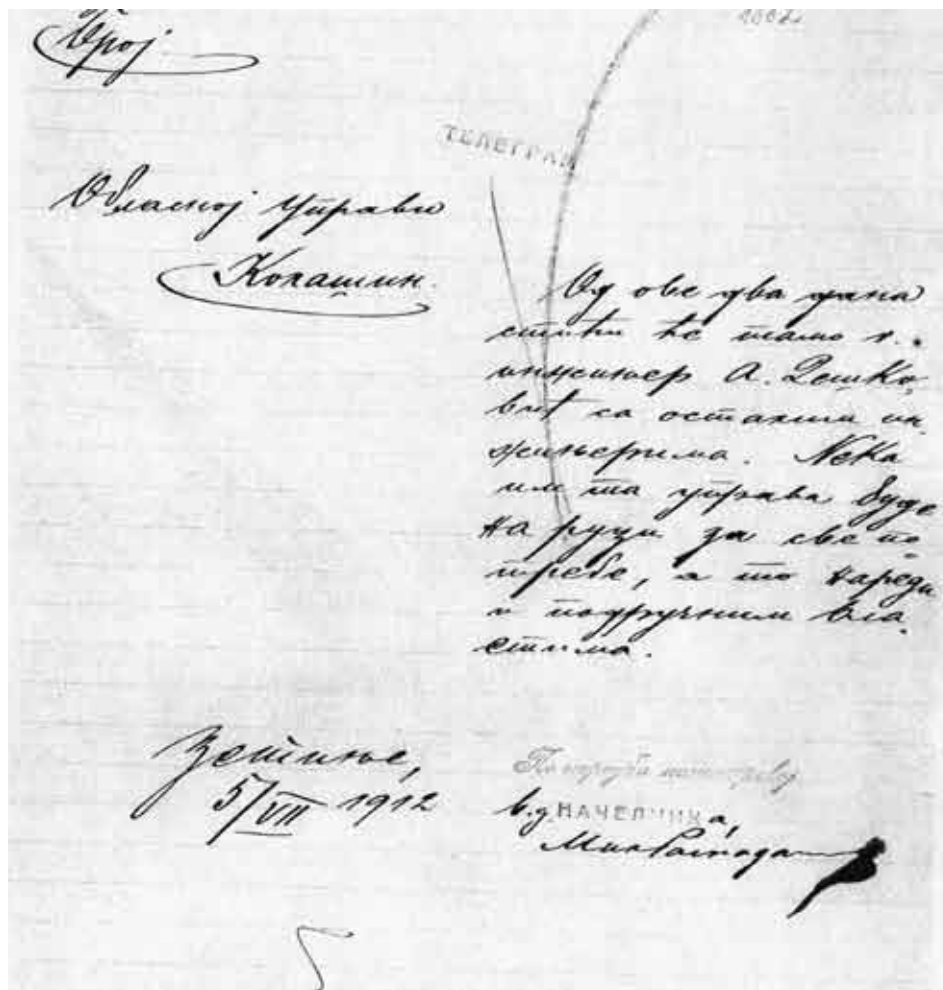 Број:
ТЕЛЕГРАМ
Обласној управи
Колашин.
Од ове два дана
стићи ће тамо г.
инжињер А. Дешко-
вић са осталим ин-
жињерима. Нека
им та управа буде
на руци за све по-
требе, а то нареди
и подручним вла-
стима.
Цетиње,
5/VII 1912
По наредби министров.
в.д НАЧЕЛНИКа,